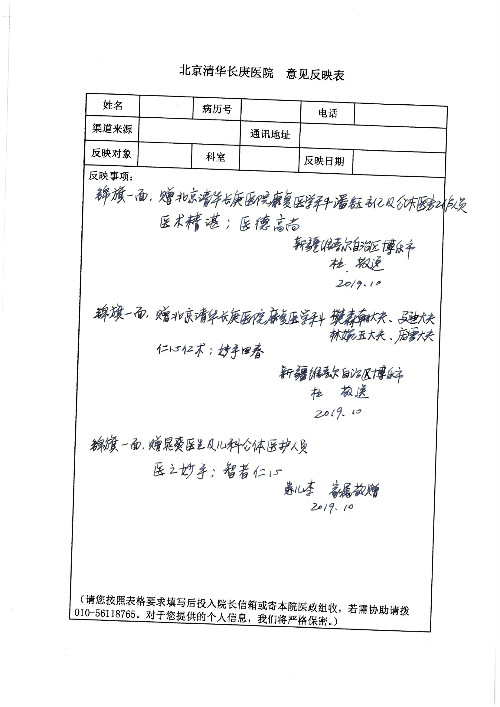 北京清华长庚医院 意见反映表
姓名 病历号 电话
渠道来源 通讯地址
反映对象 科室 反映日期
反映事项:
锦旗一面,赠北京清华长庚医院康复医学科潘钰书记及全体医务工作人员
医术精湛;医德高尚
新疆维吾尔自治区博乐市
杜 敬送
2019.10
锦旗一面,赠北京清华长庚医院康复医学科 大夫、马迪大夫
大夫、大夫
仁心仁术;妙手回春
新疆维吾尔自治区博乐市
杜 敬送
2019.10
锦旗一面,赠晁爽医生及儿科全体医护人员
医之妙手;智者仁心
患儿李 家属敬赠
2019.10
(请您按照表格要求填写后投入院长信箱或寄本院医政组收,若需协助请拨
010-56118765。对于您提供的个人信息,我们将严格保密。)